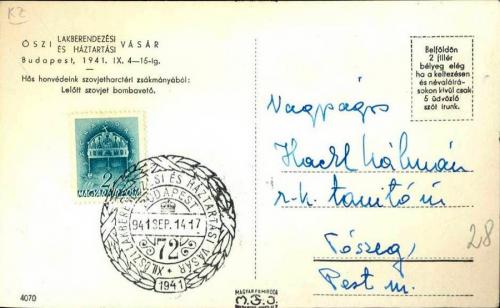 KZ
ŐSZI LAKBERENDEZÉSI ÉS HÁZTARTÁSI VÁSÁR
Budapest, 1941. IX. 4—15-ig.
Hős honvédeink szovjetharctéri zsákmányából:
Lelőtt szovjet bombavető.
Belföldön
2 fillér
bélyeg elég
ha a keltezésen
és névaláírá-
sokon kívül csak
5 üdvözlő
szót írunk.
2
MAGYAR
XII. ŐSZI LAKBERENDEZÉSI ÉS HÁZTARTÁSI VÁSÁR
BUDAPEST
941 SEP. 14-17
72
1941
Nagyságos
Hackl Kálmán
r. k. tanító úr
Tószeg,
Pest m.
28
4070